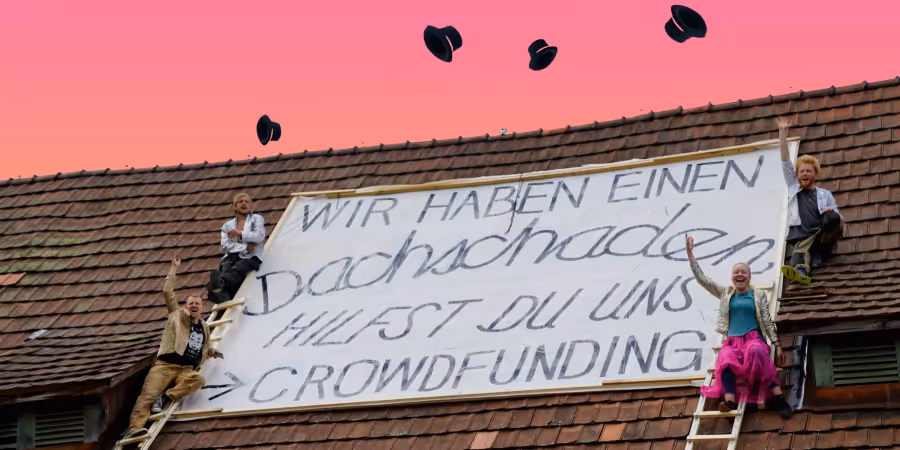 WIR HABEN EINEN
Dachschaden
HILFST DU UNS
> CROWDFUNDING